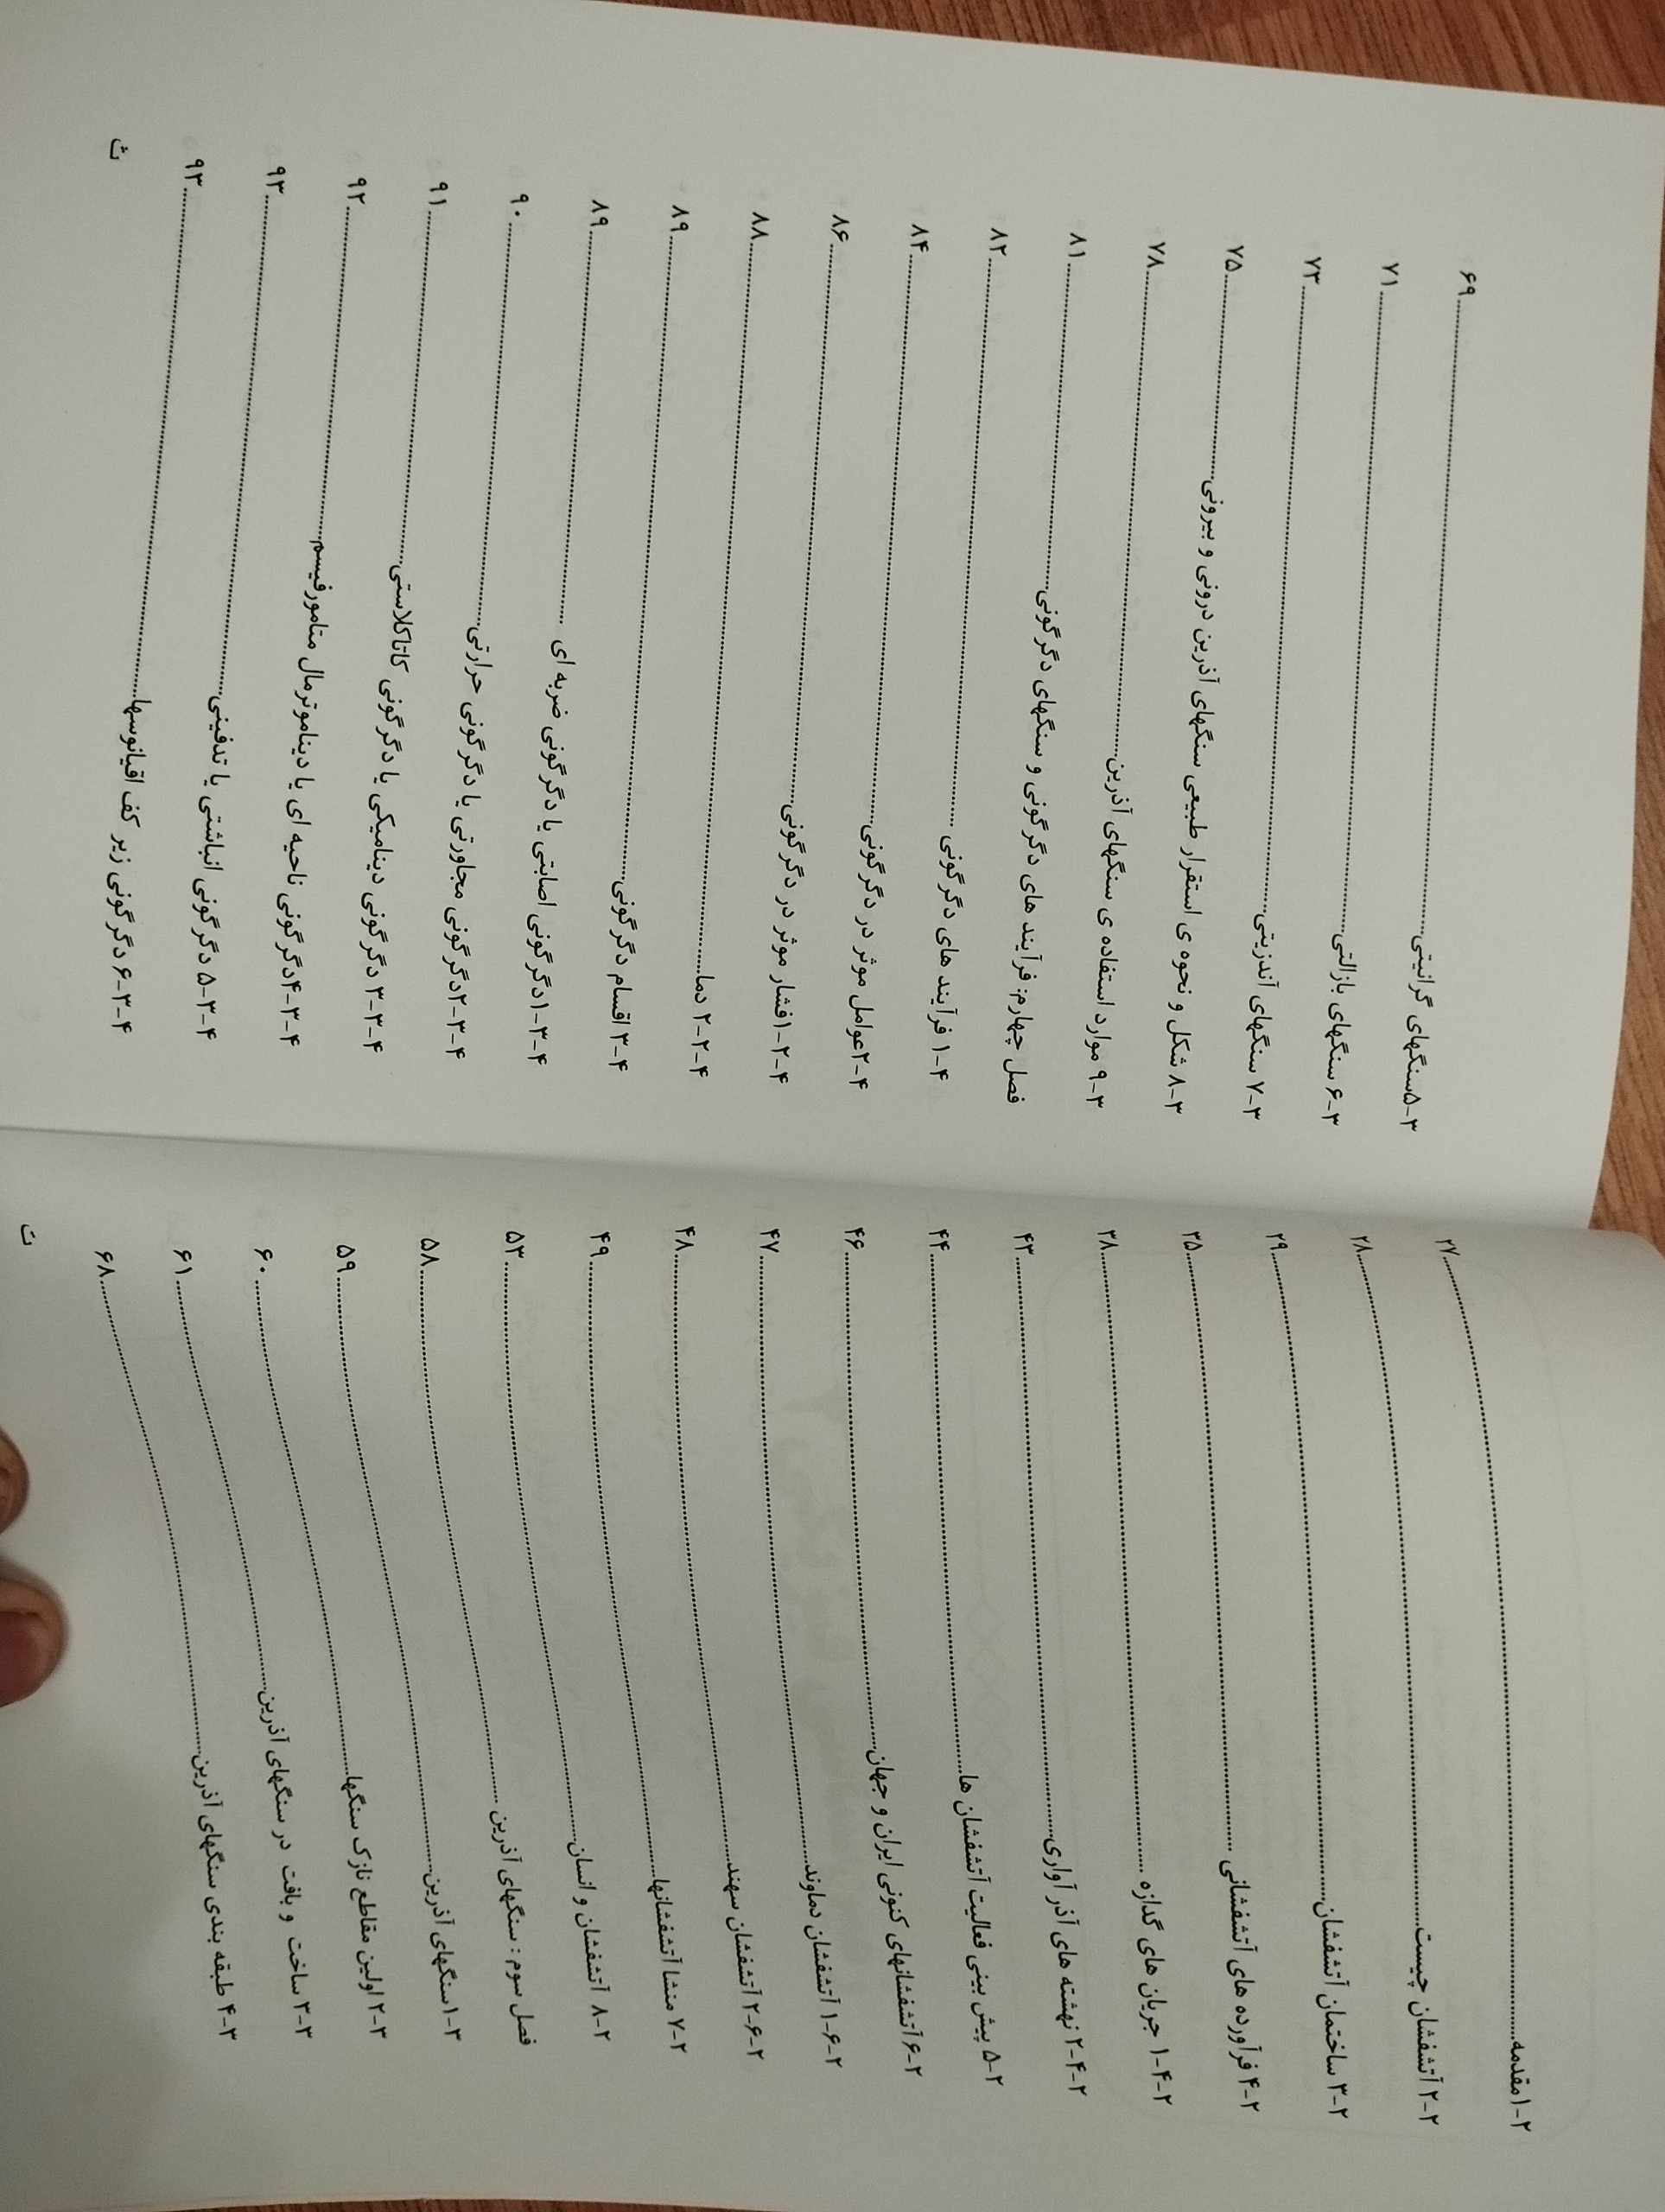 ۲-۱مقدمه........۲۷
۲-۲ آتشفشان چیست........۲۸
۲-۳ ساختمان آتشفشان........۲۹
۲-۴ فرآورده های آتشفشانی........۳۵
۲-۴-۱ جریان های گدازه........۳۸
۲-۴-۲ نهشته های آذر آواری........۴۳
۲-۵ پیش بینی فعالیت آتشفشان ها........۴۴
۲-۶ آتشفشانهای کنونی ایران و جهان........۴۶
۲-۶-۱ آتشفشان دماوند........۴۷
۲-۶-۲ آتشفشان سهند........۴۸
۲-۷ منشا آتشفشانها........۴۹
۲-۸ آتشفشان و انسان........۵۳
فصل سوم: سنگهای آذرین........۵۸
۳-۱ سنگهای آذرین........۵۹
۳-۲ اولین مقاطع نازک سنگها........۶۰
۳-۳ ساخت و بافت در سنگهای آذرین........۶۱
۳-۴ طبقه بندی سنگهای آذرین........۶۸
ت
۳-۵سنگهای گرانیتی........۶۹
۳-۶ سنگهای بازالتی........۷۱
۳-۷ سنگهای آندزیتی........۷۳
۳-۸ شکل و نحوه ی استقرار طبیعی سنگهای آذرین درونی و بیرونی........۷۵
۳-۹ موارد استفاده ی سنگهای آذرین........۷۸
فصل چهارم: فرآیند های دگرگونی و سنگهای دگرگونی........۸۱
۴-۱ فرآیند های دگرگونی........۸۲
۴-۲عوامل موثر در دگرگونی........۸۴
۴-۲-۱فشار موثر در دگرگونی........۸۶
۴-۲-۲ دما........۸۸
۴-۳ اقسام دگرگونی........۸۹
۴-۳-۱دگرگونی اصابتی یا دگرگونی ضربه ای........۸۹
۴-۳-۲دگرگونی مجاورتی یا دگرگونی حرارتی........۹۰
۴-۳-۳ دگرگونی دینامیکی یا دگرگونی کاتاکلاستی........۹۱
۴-۳-۴دگرگونی ناحیه ای یا دیناموترمال متامورفیسم........۹۲
۴-۳-۵ دگرگونی انباشتی یا تدفینی........۹۳
۴-۳-۶ دگرگونی زیر کف اقیانوسها........۹۳
ث